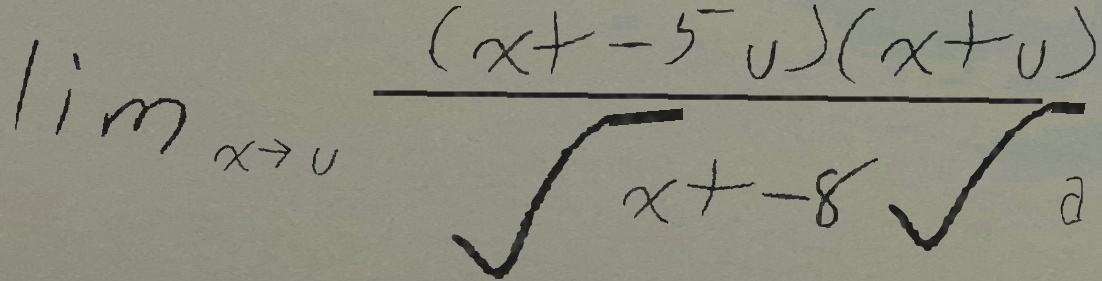 \lim_{x \to u} \frac{(x + -5u)(x+u)}{\sqrt{x} + -8\sqrt{a}}